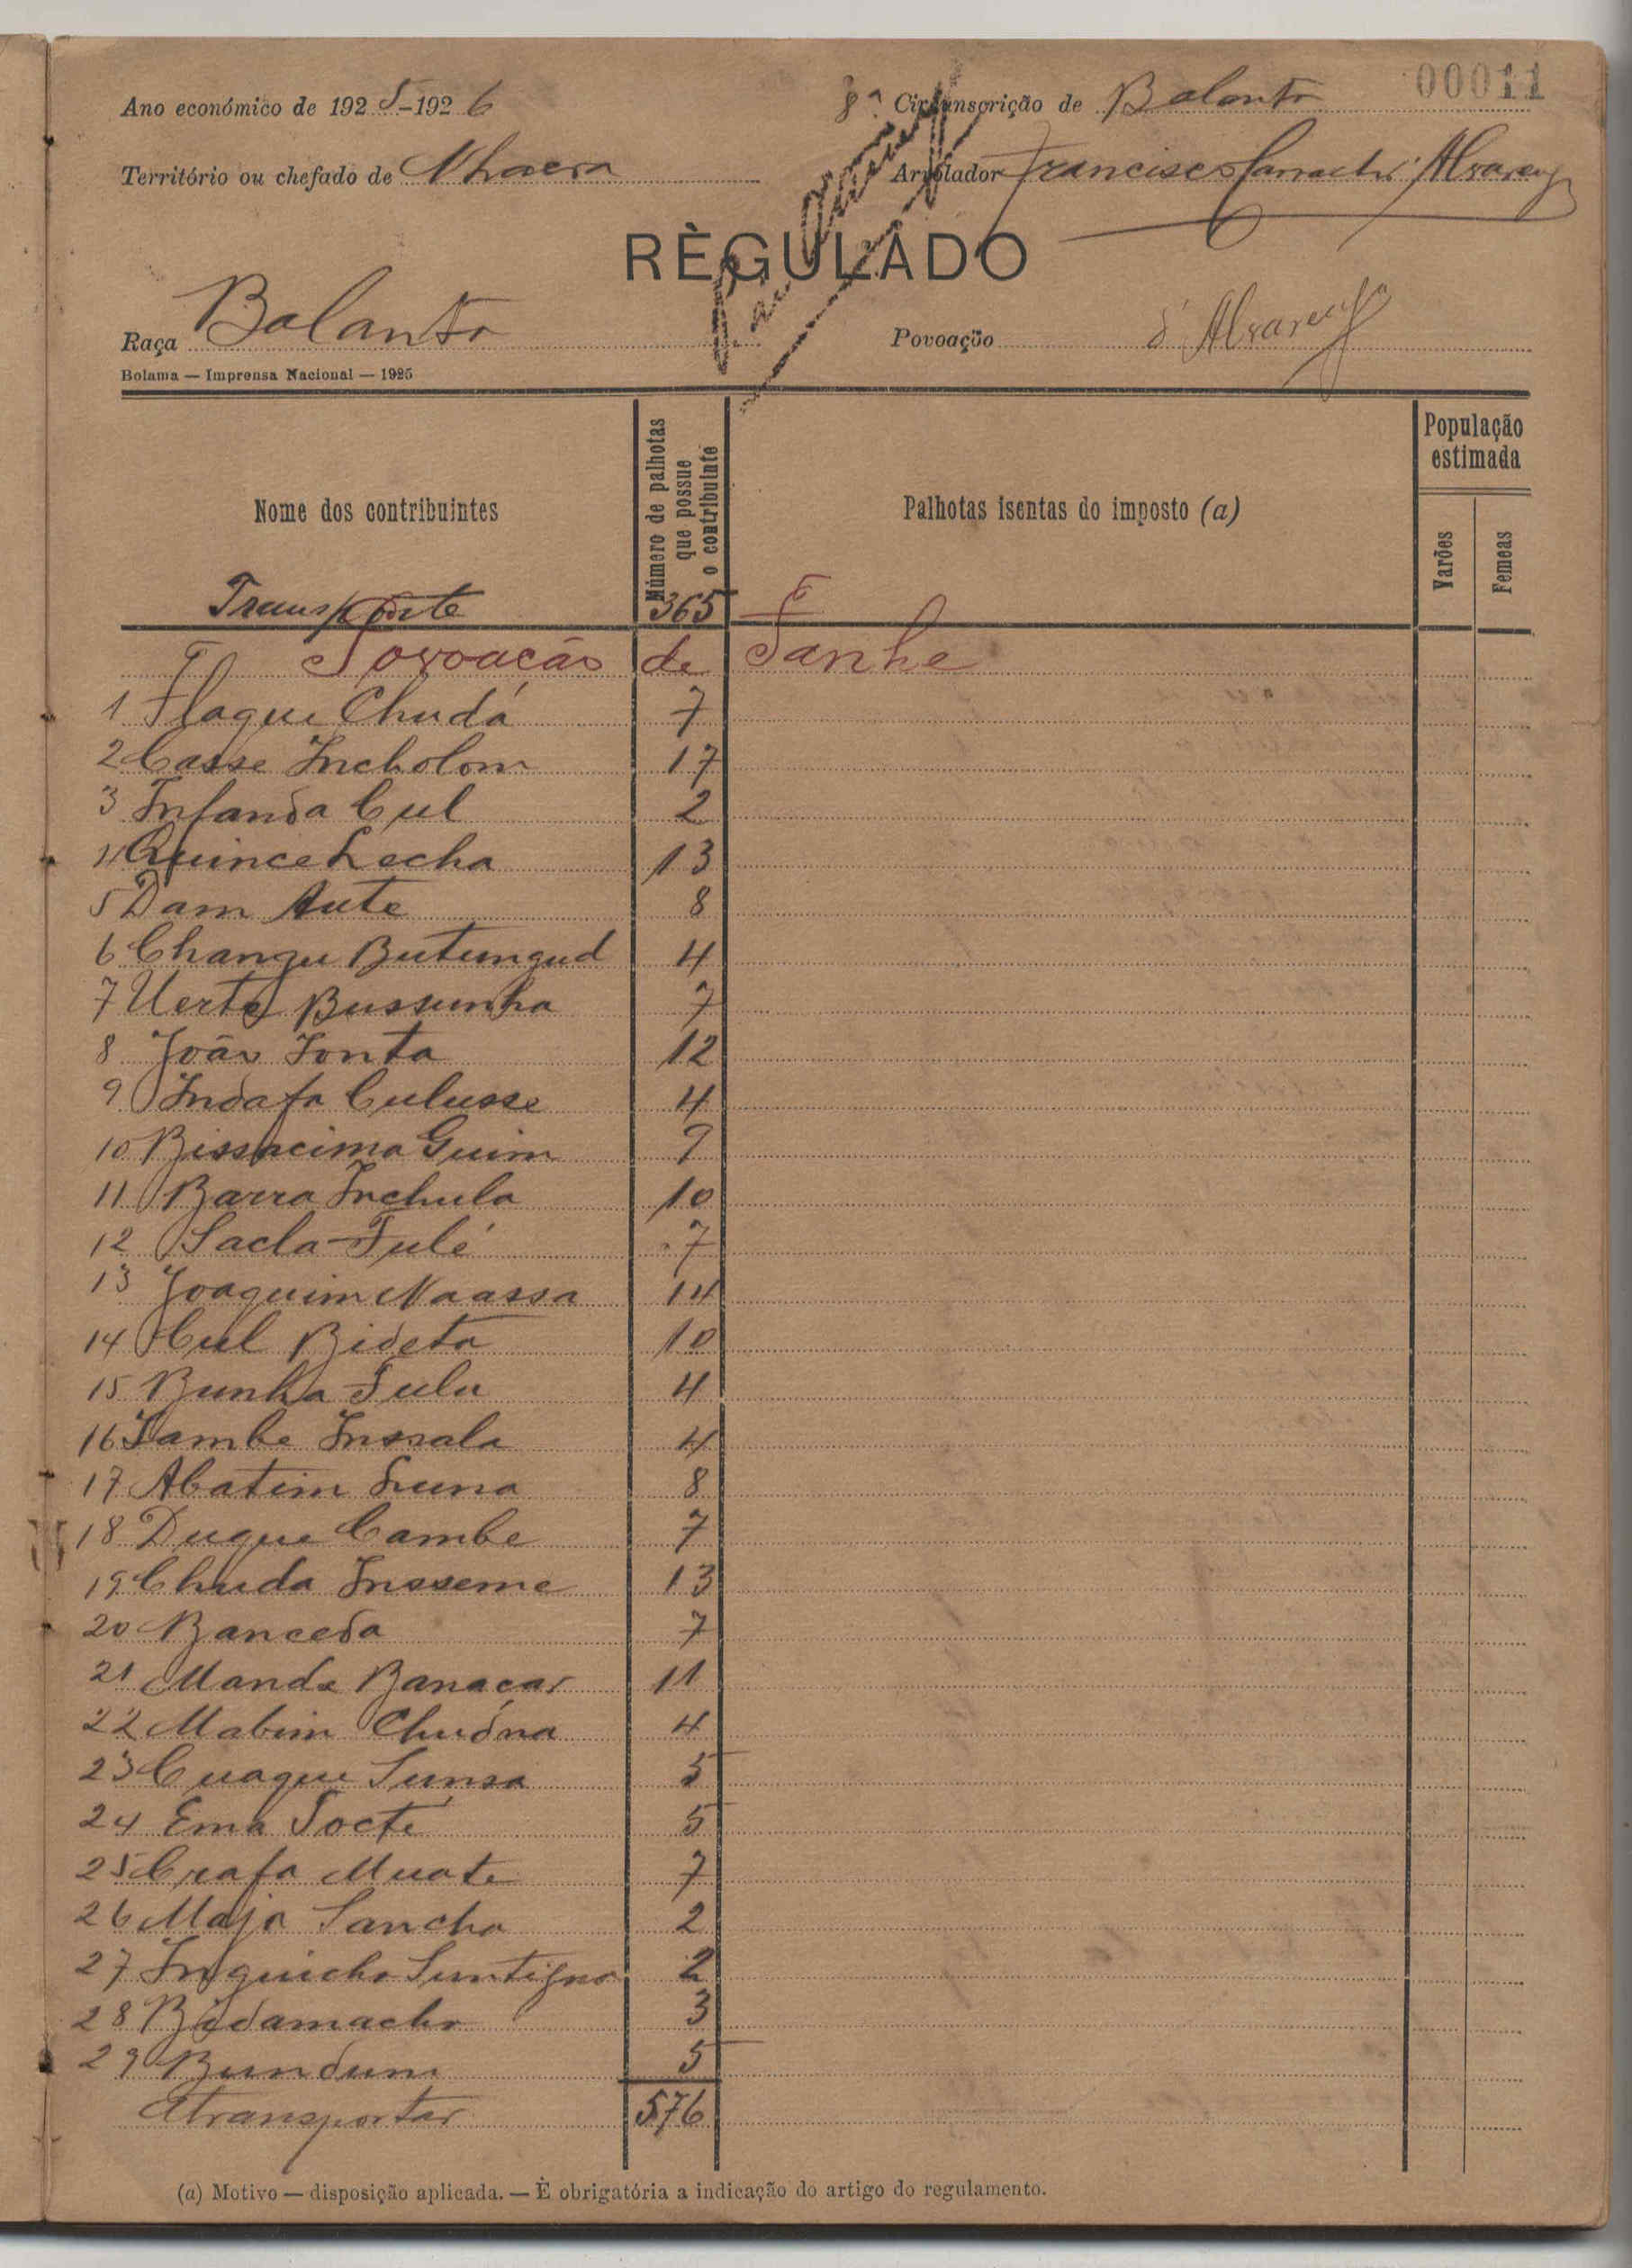 00011
Ano económico de 1925-1926 8ª Circunscrição de Balanta
Território ou chefado de Nhacra Arrolador Francisco Alvarenga
RÈGULADO
Raça Balanta Povoação d'Alvarenga
Bolama — Imprensa Nacional — 1925
Nome dos contribuintes Número de palhotas que possue o contribuinte Palhotas isentas do imposto (a) População estimada
Varões Femeas
Transporte 365
Povoação de Fanhe
1 Flaque Chudá 7
2 Casse Incholom 17
3 Infanda Cul 2
4 Quince Lecha 13
5 Dam Aute 8
6 Changu Butungud 4
7 Uerte Bussunha 7
8 João Fonta 12
9 Indafa Culusse 4
10 Bissacima Guim 9
11 Barra Inchula 10
12 Sacla Fulé 7
13 Joaquim Naassa 14
14 Cul Bideta 10
15 Bunha Fulu 4
16 Tambe Inssala 4
17 Abatim Luna 8
18 Duque Cambe 7
19 Chuda Insseme 13
20 Banceda 7
21 Manda Banacar 11
22 Mabim Chudna 4
23 Cuaque Sunsa 5
24 Ema Tocte 5
25 Crafa Muate 7
26 Maja Sancha 2
27 2
28 Bidamacho 3
29 Bundum 5
Atransportar 576
(a) Motivo — disposição aplicada. — È obrigatória a indicação do artigo do regulamento.